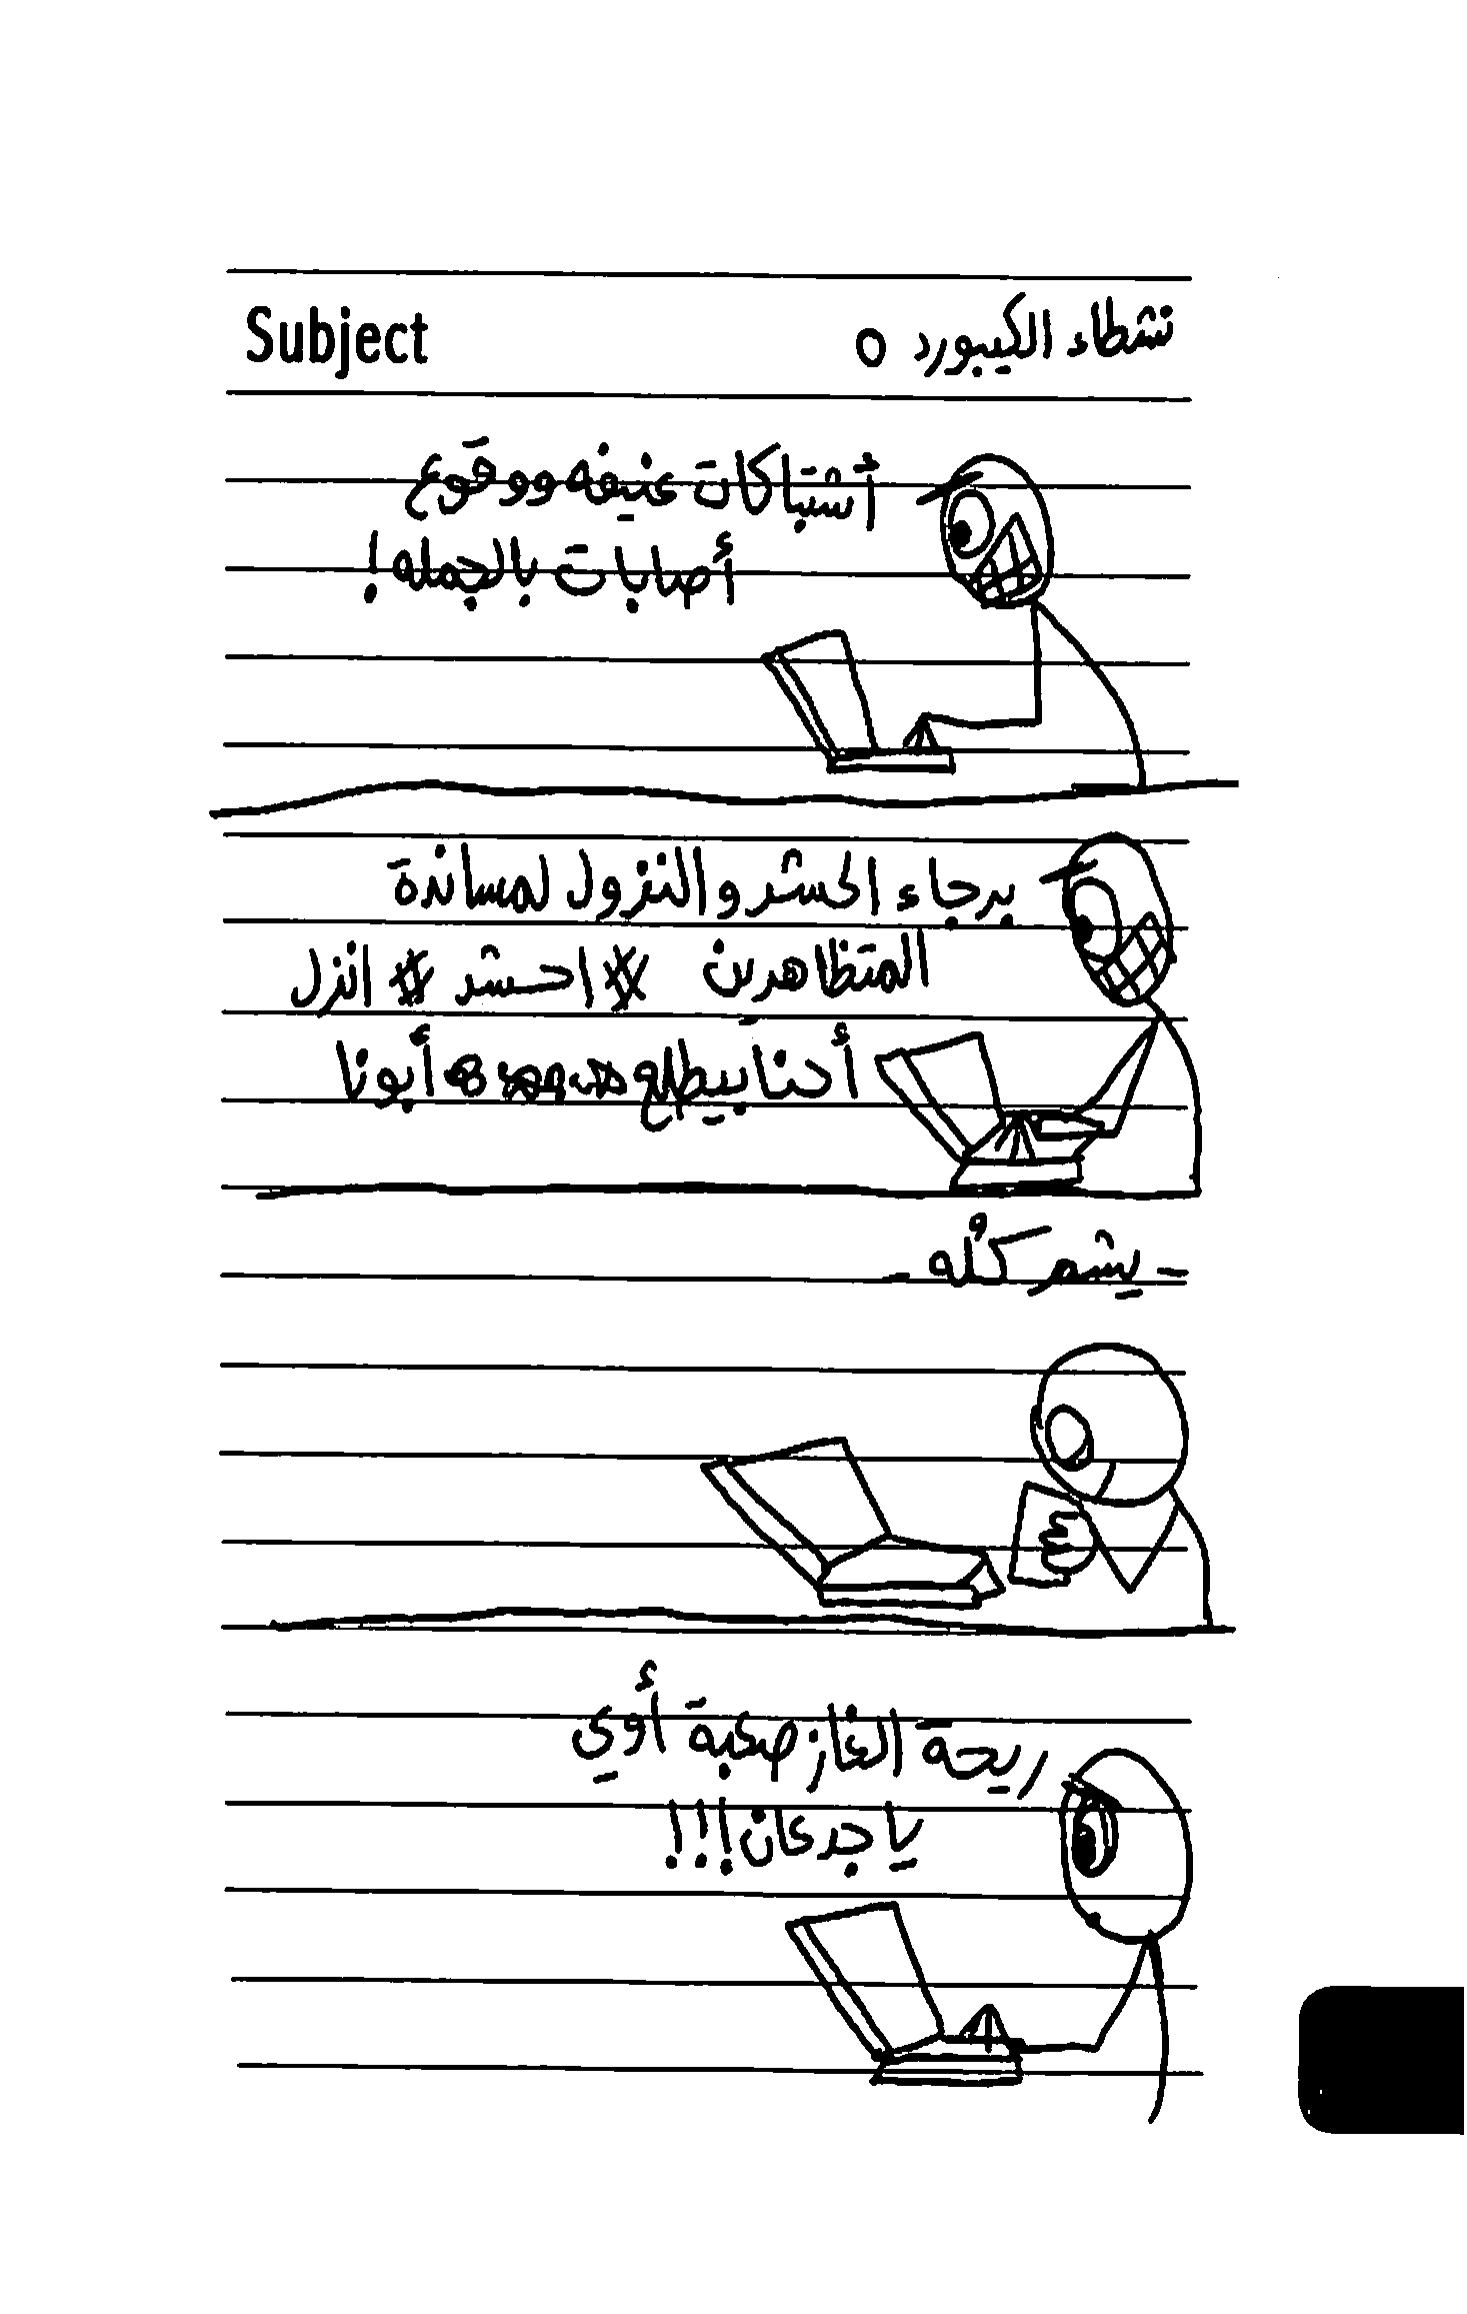 Subject
نشطاء الكيبورد 5
أشتباكات عنيفه ووقوع
أصابات بالجمله!
برجاء الحشد والنزول لمساندة
المتظاهرين #احشد #انزل
أحنا بيطلع أبونا
- يشمر كُله -
ريحة الغاز صعبة أوي
يا جدعان!!!